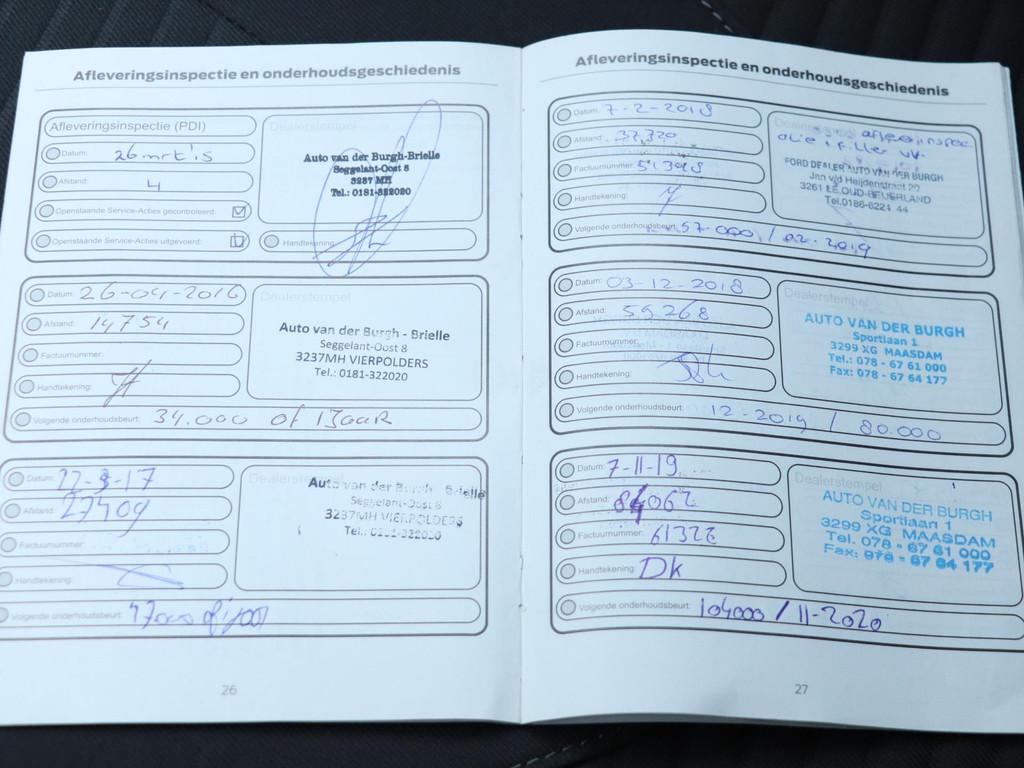 Afleveringsinspectie en onderhoudsgeschiedenis
Afleveringsinspectie (PDI)
Datum: 26 mrt '15
Afstand: 4
Openstaande Service-Acties gecontroleerd:
Openstaande Service-Acties uitgevoerd:
Dealerstempel
Auto van der Burgh-Brielle
Seggelant-Oost 8
3237 MH
Tel.: 0181-322020
Handtekening:
Datum: 26-04-2016
Afstand: 14754
Factuurnummer:
Handtekening:
Volgende onderhoudsbeurt: 34.000 of 1 Jaar
Dealerstempel
Auto van der Burgh - Brielle
Seggelant-Oost 8
3237MH VIERPOLDERS
Tel.: 0181-322020
Datum: 22-3-17
Afstand: 27409
Factuurnummer:
Handtekening:
Volgende onderhoudsbeurt: 47000 of 1 jaar
Auto van der Burgh - Brielle
Seggelant-Oost 8
3237MH VIERPOLDERS
Tel.: 0181-322020
26
Afleveringsinspectie en onderhoudsgeschiedenis
Datum: 7-2-2018
Afstand: 37.720
Factuurnummer: 51398
Handtekening:
Volgende onderhoudsbeurt: 57.000 / 02-2019
Dealerstempel
olie filter vv.
FORD DEALER AUTO VAN DER BURGH
Jan v/d Heijdenstraat 20
3261 LE OUD-BEIJERLAND
Tel.0186-6221 44
Datum: 03-12-2018
Afstand: 59.268
Factuurnummer:
Handtekening:
Volgende onderhoudsbeurt: 12-2019 / 80.000
Dealerstempel
AUTO VAN DER BURGH
Sportlaan 1
3299 XG MAASDAM
Tel.: 078 - 67 61 000
Fax: 078 - 67 64 177
Datum: 7-11-19
Afstand: 84062
Factuurnummer: 61322
Handtekening: DK
Volgende onderhoudsbeurt: 104000 / 11-2020
Dealerstempel
AUTO VAN DER BURGH
Sportlaan 1
3299 XG MAASDAM
Tel. 078 - 67 61 000
Fax: 078 - 67 64 177
27